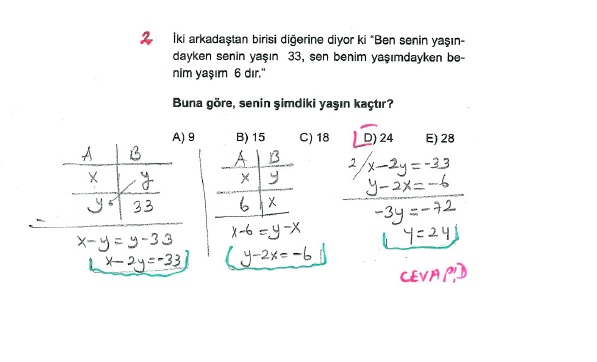 2 İki arkadaştan birisi diğerine diyor ki "Ben senin yaşın-
dayken senin yaşın 33, sen benim yaşımdayken be-
nim yaşım 6 dır."
Buna göre, senin şimdiki yaşın kaçtır?
A) 9 B) 15 C) 18 D) 24 E) 28
A B
x y
y 33
x-y = y-33
x-2y=-33
A B
x y
6 x
x-6=y-x
y-2x=-6
2/ x-2y=-33
y-2x=-6
-3y=-72
y=24
CEVAP,D